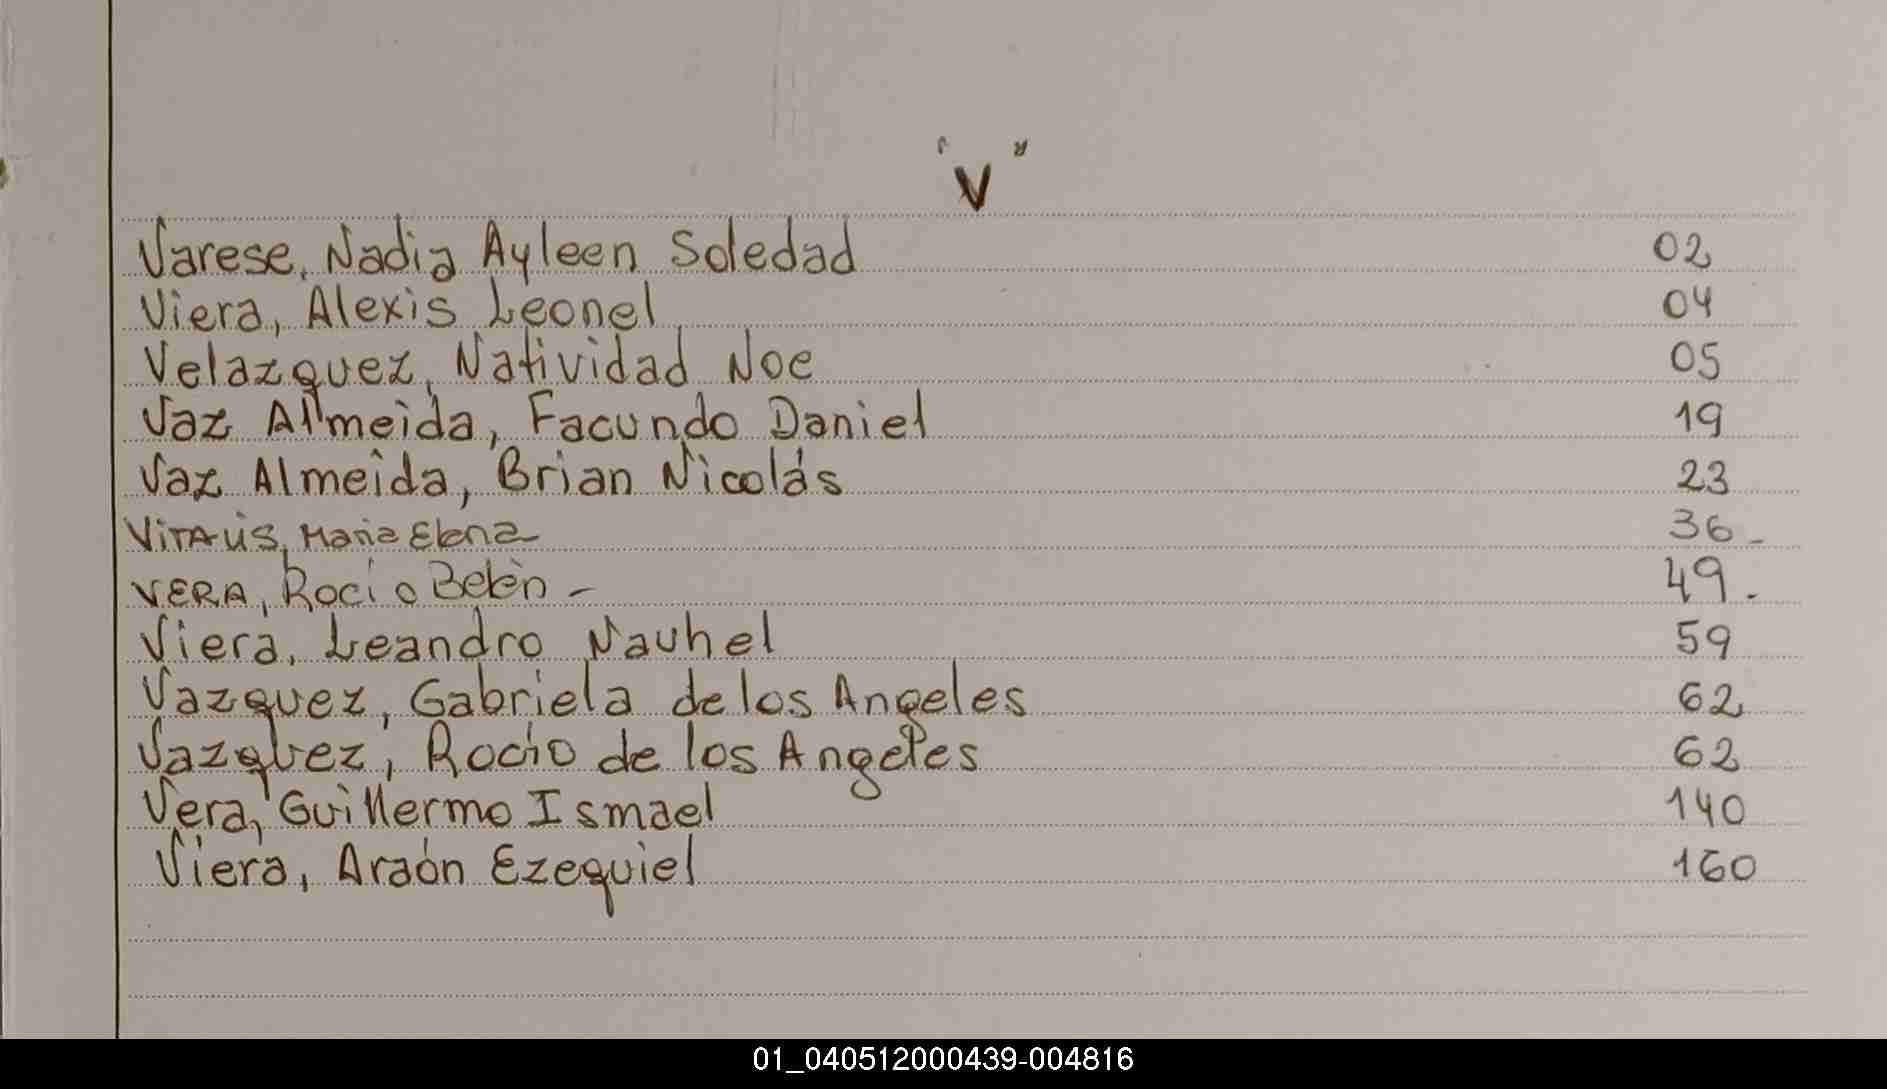 "V"
Varese, Nadia Ayleen Soledad 02
Viera, Alexis Leonel 04
Velazquez, Natividad Noe 05
Vaz Almeida, Facundo Daniel 19
Vaz Almeida, Brian Nicolás 23
Maria Elena 36-
VERA, Rocio Belén - 49.
Viera, Leandro Nauhel 59
Vazquez, Gabriela de los Angeles 62
Vazquez, Rocio de los Angeles 62
Vera, Guillermo Ismael 140
Viera, Araón Ezequiel 160
01_040512000439-004816